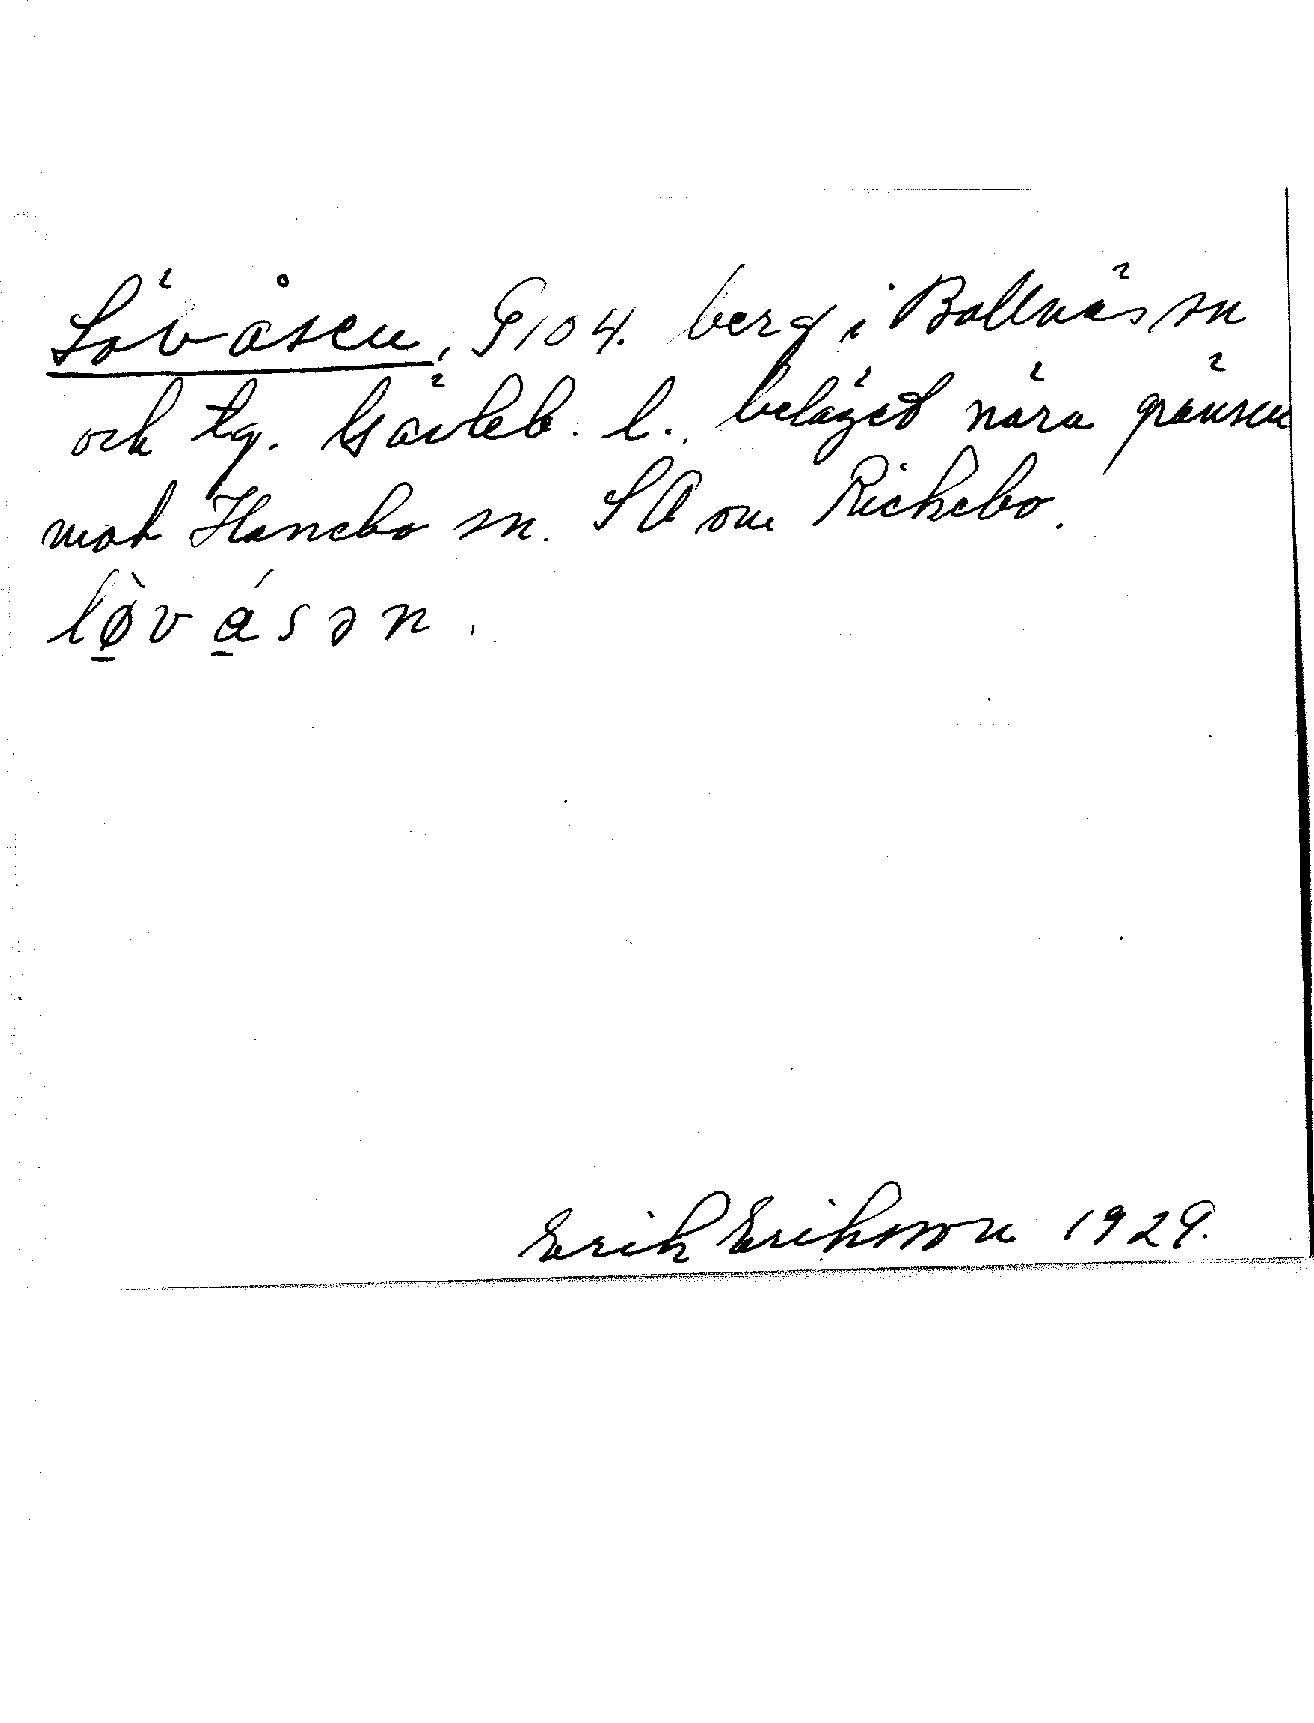 Lövåsen, G104. berg i Bollnäs sn
och tg. Gävleb. l., beläget nära gränsen
mot Hanebo sn. SO om Rickebo.
lø̀vásən.
Erik Eriksson 1929.